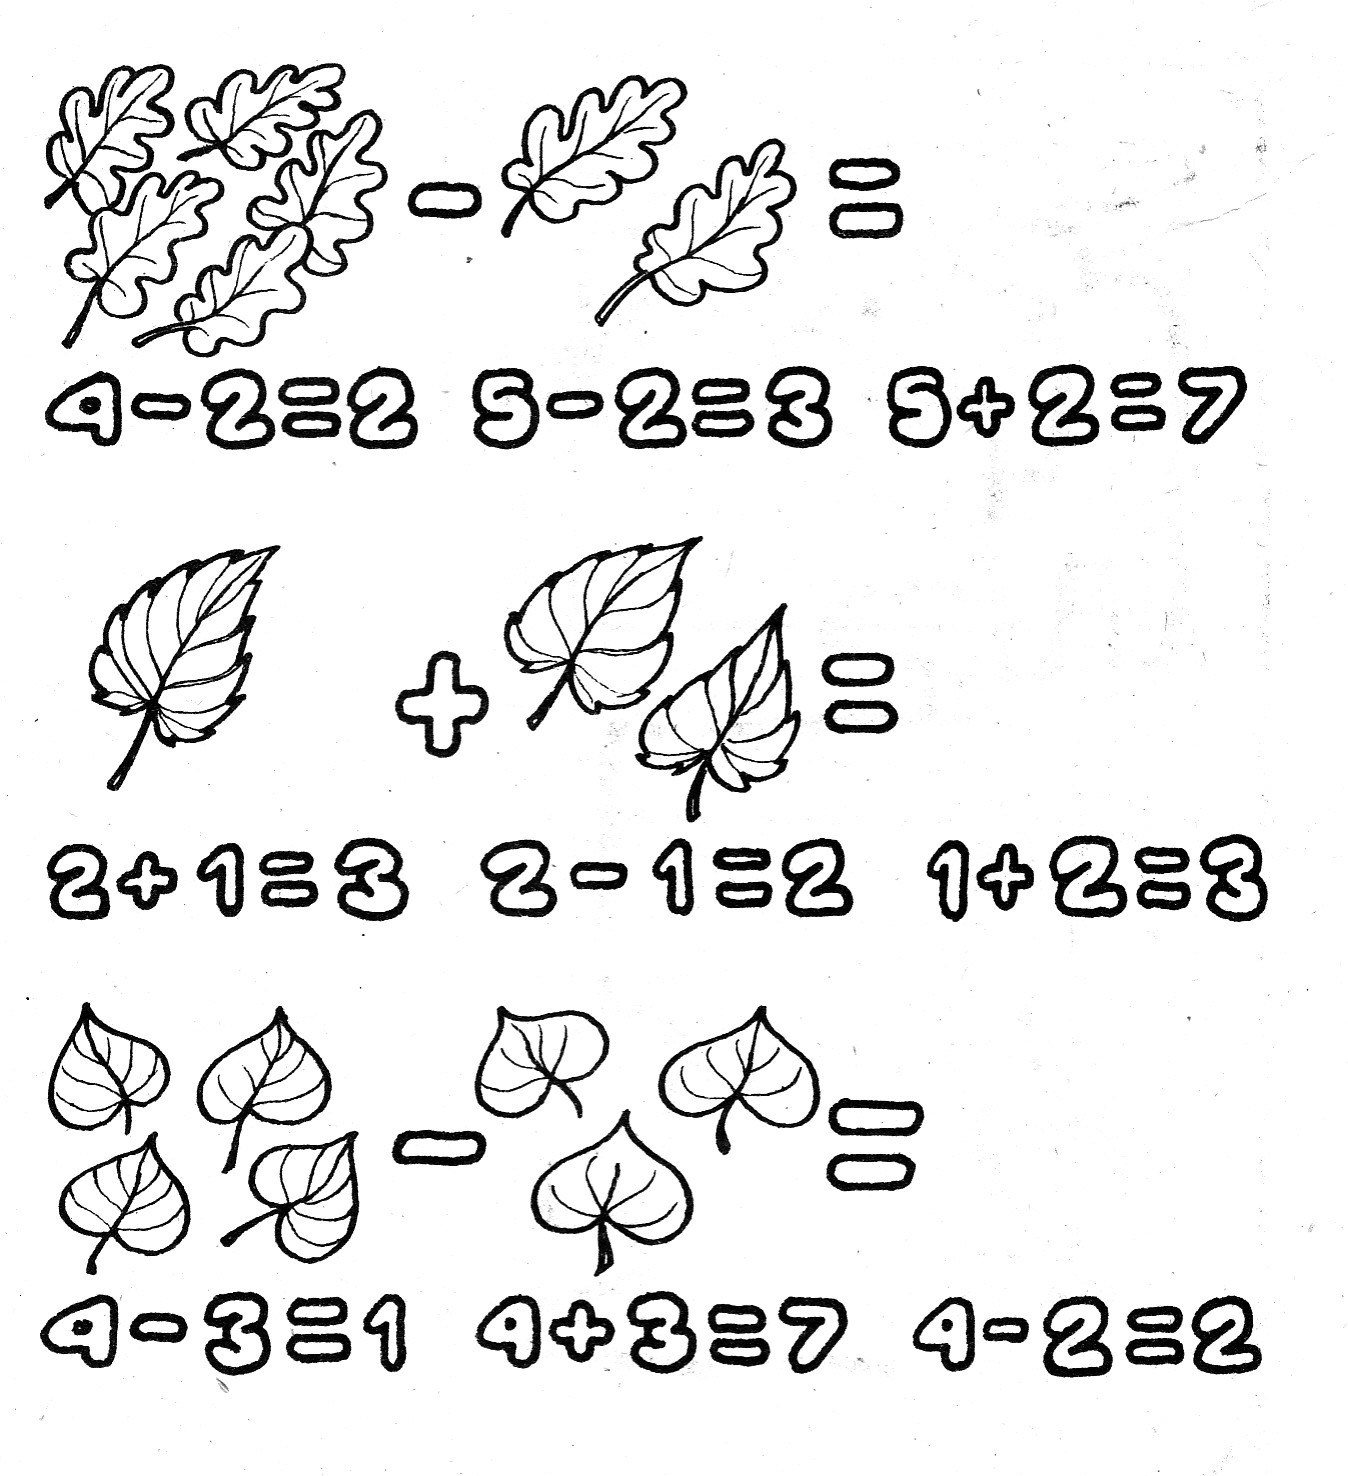 - =
4-2=2 5-2=3 5+2=7
+ =
2+1=3 2-1=2 1+2=3
- =
4-3=1 4+3=7 4-2=2